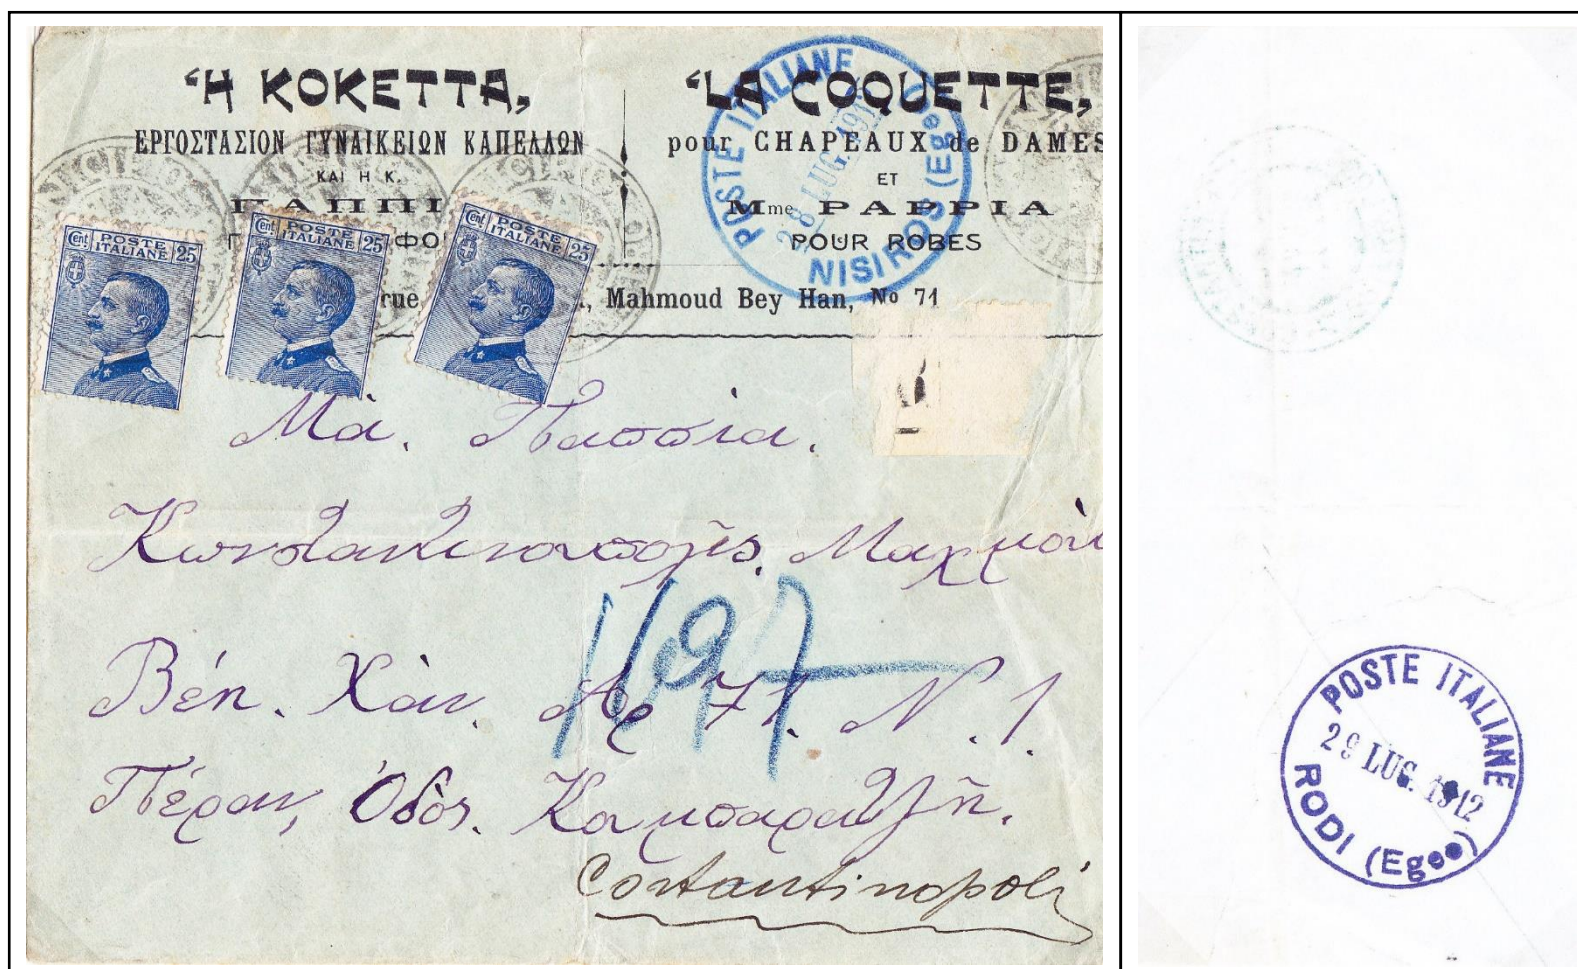 “Η ΚΟΚΕΤΤΑ„
ΕΡΓΟΣΤΑΣΙΟΝ ΓΥΝΑΙΚΕΙΩΝ ΚΑΠΕΛΛΩΝ
ΚΑΙ Η Κ.
ΠΑΠΠΙ
“LA COQUETTE„
pour CHAPEAUX de DAMES
ET
Mme PAPPIA
POUR ROBES
rue
Mahmoud Bey Han, No 71
POSTE ITALIANE
28 LUG. 191
NISIROS (Egeo
Cent POSTE ITALIANE 25
Cent POSTE ITALIANE 25
Cent POSTE ITALIANE 25
Μα. Παππια.
Κωνσταντινουπολις. Μαχμου
Βέη. Χὰν. Αρ 71. Ν. 1.
Πέραν, Ὁδὸς.
Costantinopoli
POSTE ITALIANE
29 LUG. 1912
RODI (Egeo)